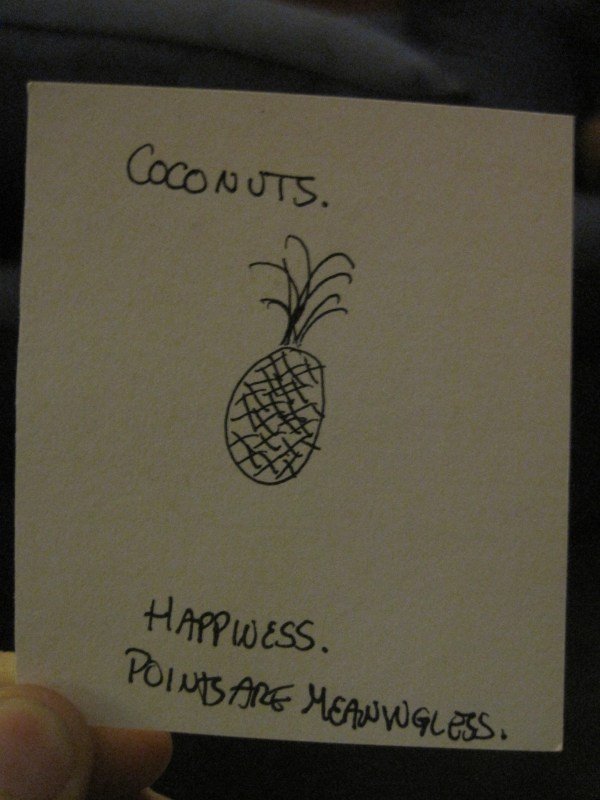 COCONUTS.
HAPPINESS.
POINTS ARE MEANINGLESS.